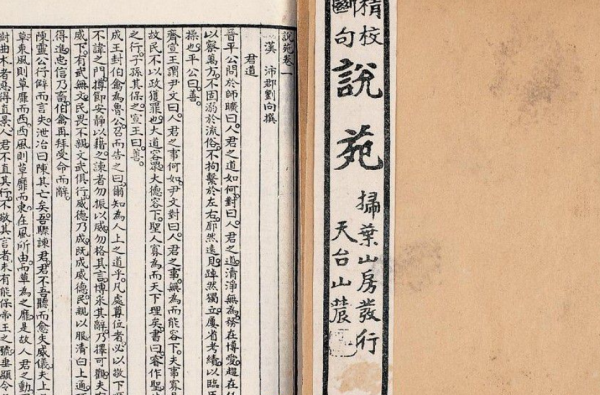 精校
斷句
說苑
掃葉山房發行
天台山農
說苑卷一
漢 沛郡劉向撰
君道
晉平公問於師曠曰人君之道如何對曰人君之道清淨無為務在博愛趨在任
以察萬方不固溺於流俗不拘繫於左右廓然遠見踔然獨立屢省考績以臨
操也平公曰善
齊宣王謂尹文曰人君之事何如尹文對曰人君之事無為而能容下夫事寡
故民不以政獲罪也大道容眾大德容下聖人寡為而天下理矣書曰睿作聖
之行子孫其保之宣王曰善
成王封伯禽為魯公召而告之曰爾知為人上之道乎凡處尊位者必以敬下
不諱之門撙節安靜以藉之諫者勿振以威勿格其言博采其辭乃擇可觀夫有
威下有武無文民畏不親文武俱行威德乃成既成威德民親以服清白上通
得進忠信乃畜伯禽再拜受命而辭
陳靈公行僻而言失泄冶曰陳其亡矣吾驟諫君君不吾聽而愈失威儀夫上
草東風則草靡而西西風則草靡而東在風所由而草為之靡是故人君之動
樹曲木者惡得直景人君不直其行不敬其言者未有能保帝王之號垂顯令